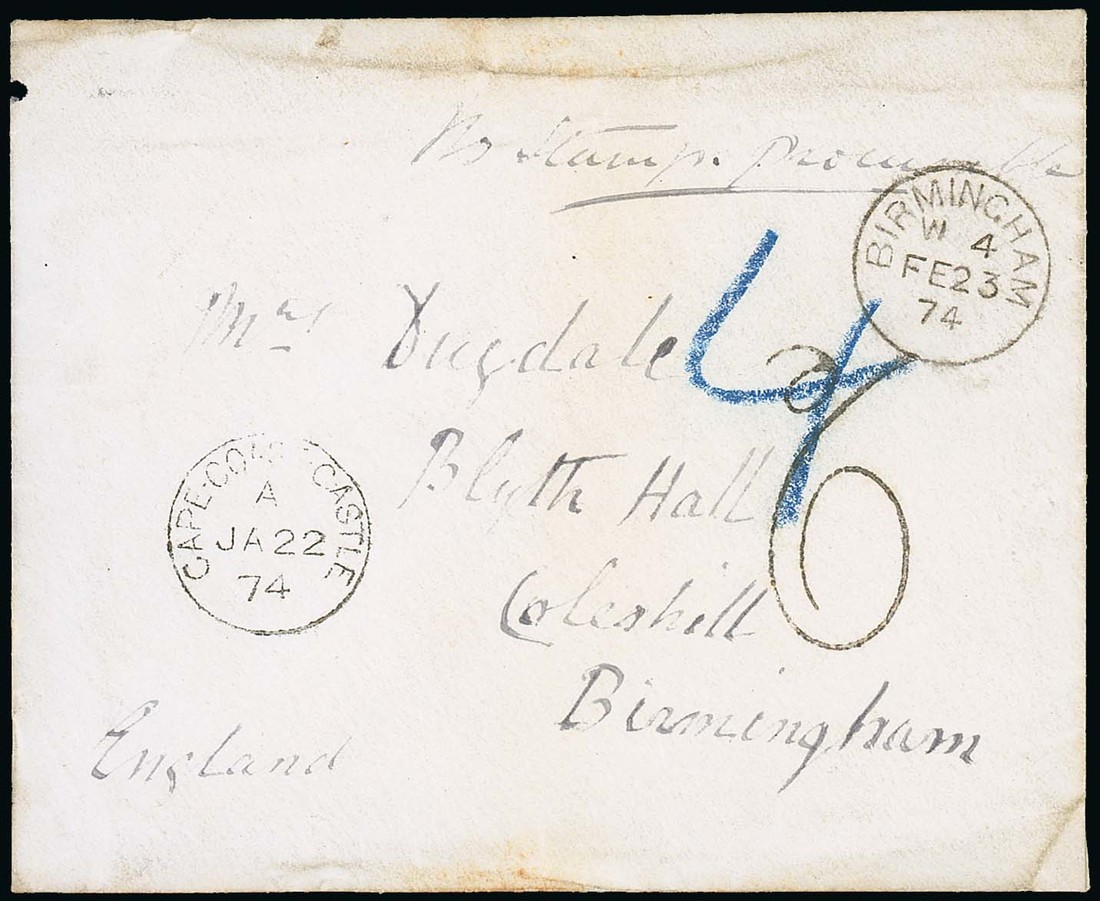 No Stamps procurable
BIRMINGHAM
W 4
FE 23
74
4
6
Mrs Dugdale
Blyth Hall
Coleshill
Birmingham
England
CAPE·COAST·CASTLE
A
JA 22
74